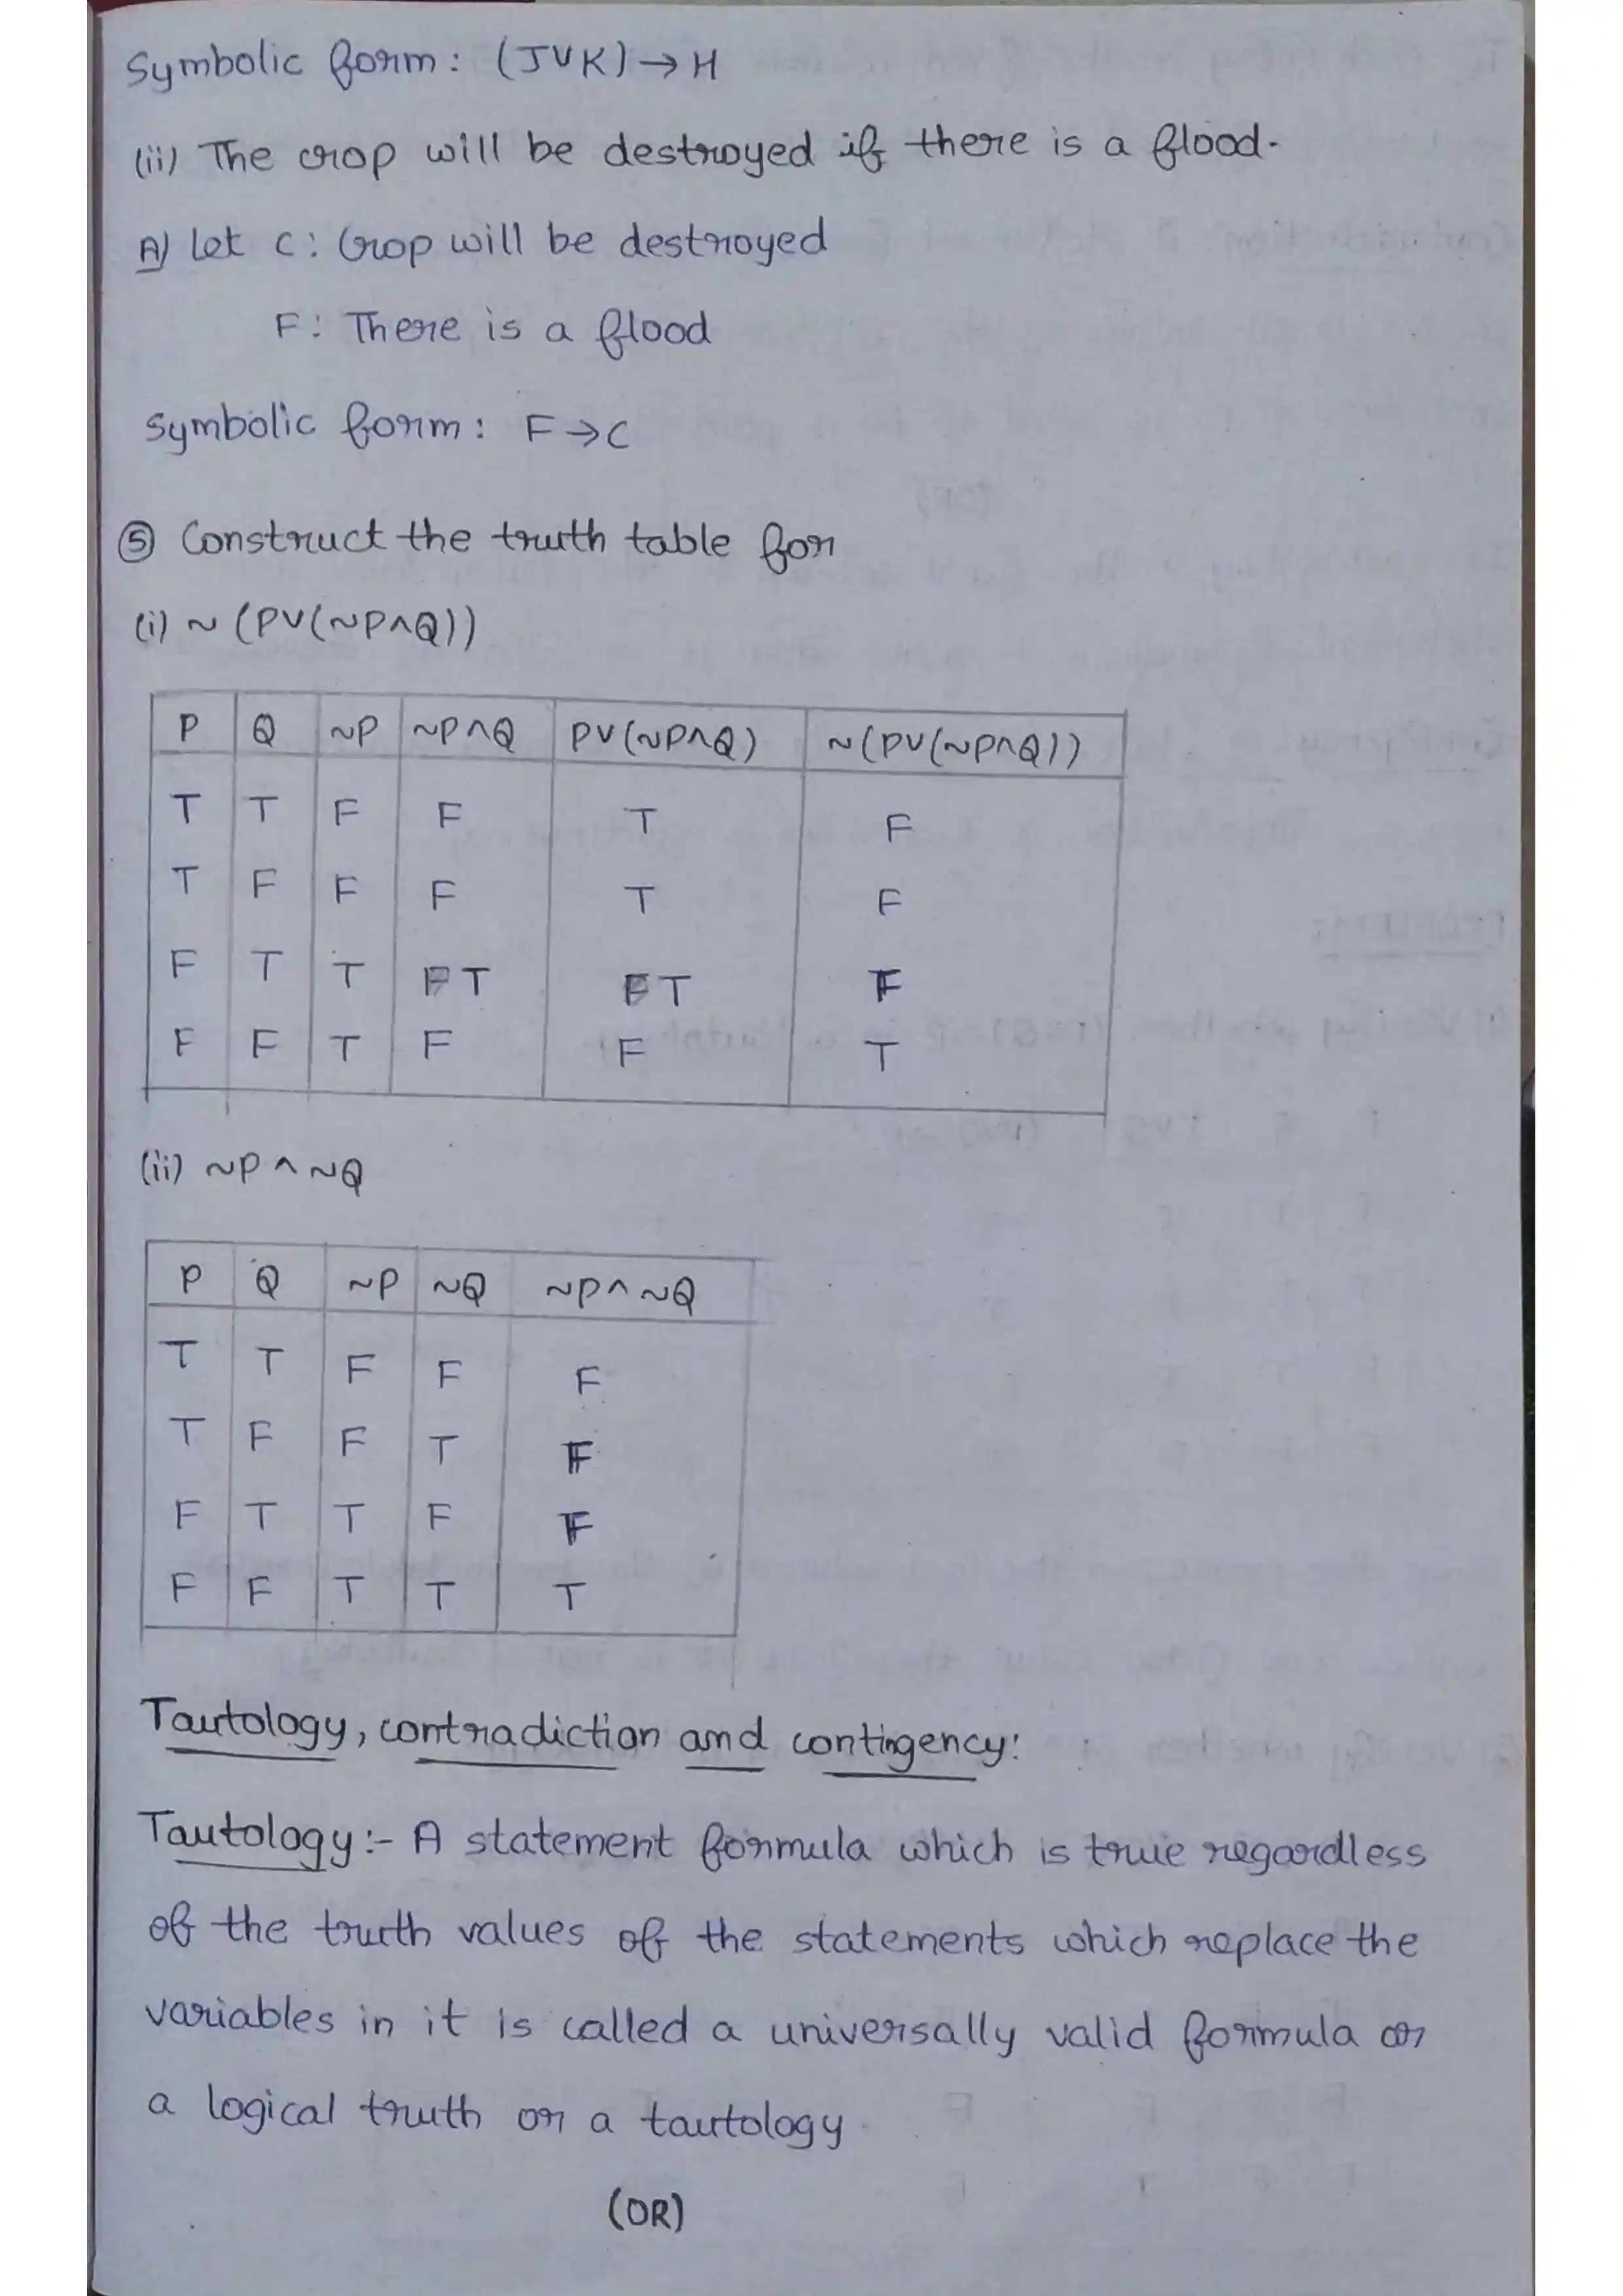 Symbolic form: (J∨K)→H
(ii) The crop will be destroyed if there is a flood.
A) Let C: Crop will be destroyed
F: There is a flood
Symbolic form: F→C
⑤ Construct the truth table for
(i) ~(P∨(~P∧Q))
P Q ~P ~P∧Q P∨(~P∧Q) ~(P∨(~P∧Q))
T T F F T F
T F F F T F
F T T T T F
F F T F F T
(ii) ~P∧~Q
P Q ~P ~Q ~P∧~Q
T T F F F
T F F T F
F T T F F
F F T T T
Tautology, contradiction and contingency:
Tautology:- A statement formula which is true regardless
of the truth values of the statements which replace the
variables in it is called a universally valid formula or
a logical truth or a tautology.
(OR)